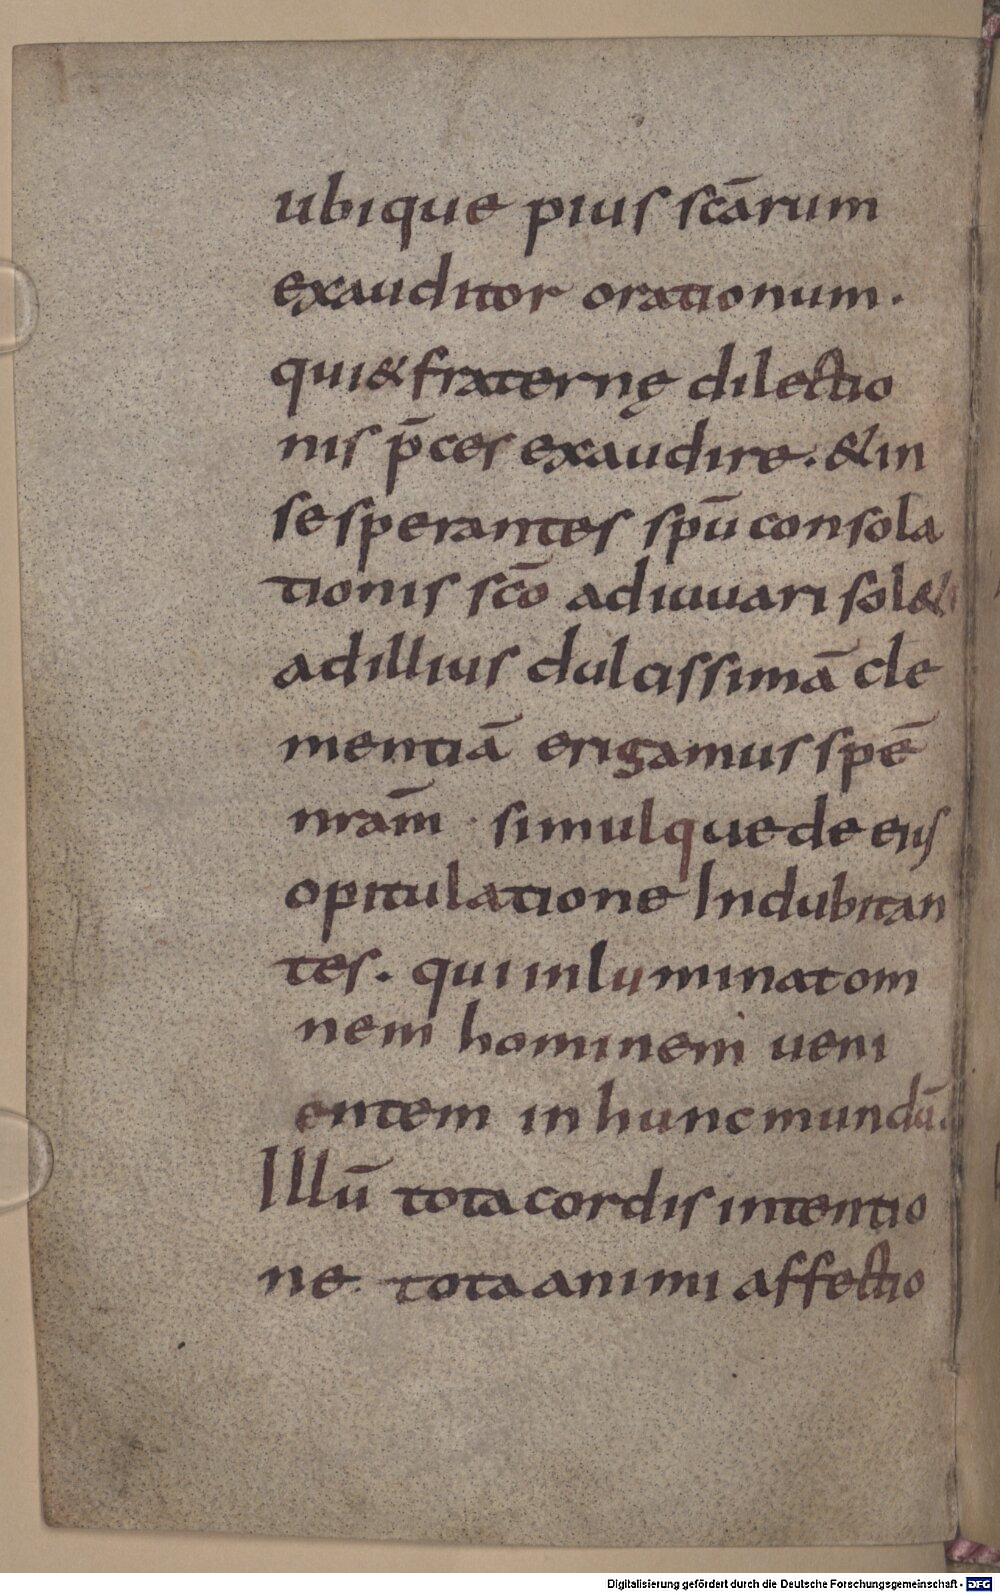 ubique pius scārum
exauditor orationum.
qui & fraternę dilectio
nis p̄ces exaudire. & in
se sperantes spū consola
tionis scō adiuuari sol&
ad illius dulcissimā cle
mentiā erigamus spē
nram̄ simulque de eius
opitulatione Indubitan
tes. qui inluminat om
nem hominem ueni
entem in hunc mundū.
Illū tota cordis intentio
ne tota animi affectio
Digitalisierung gefördert durch die Deutsche Forschungsgemeinschaft - DFG